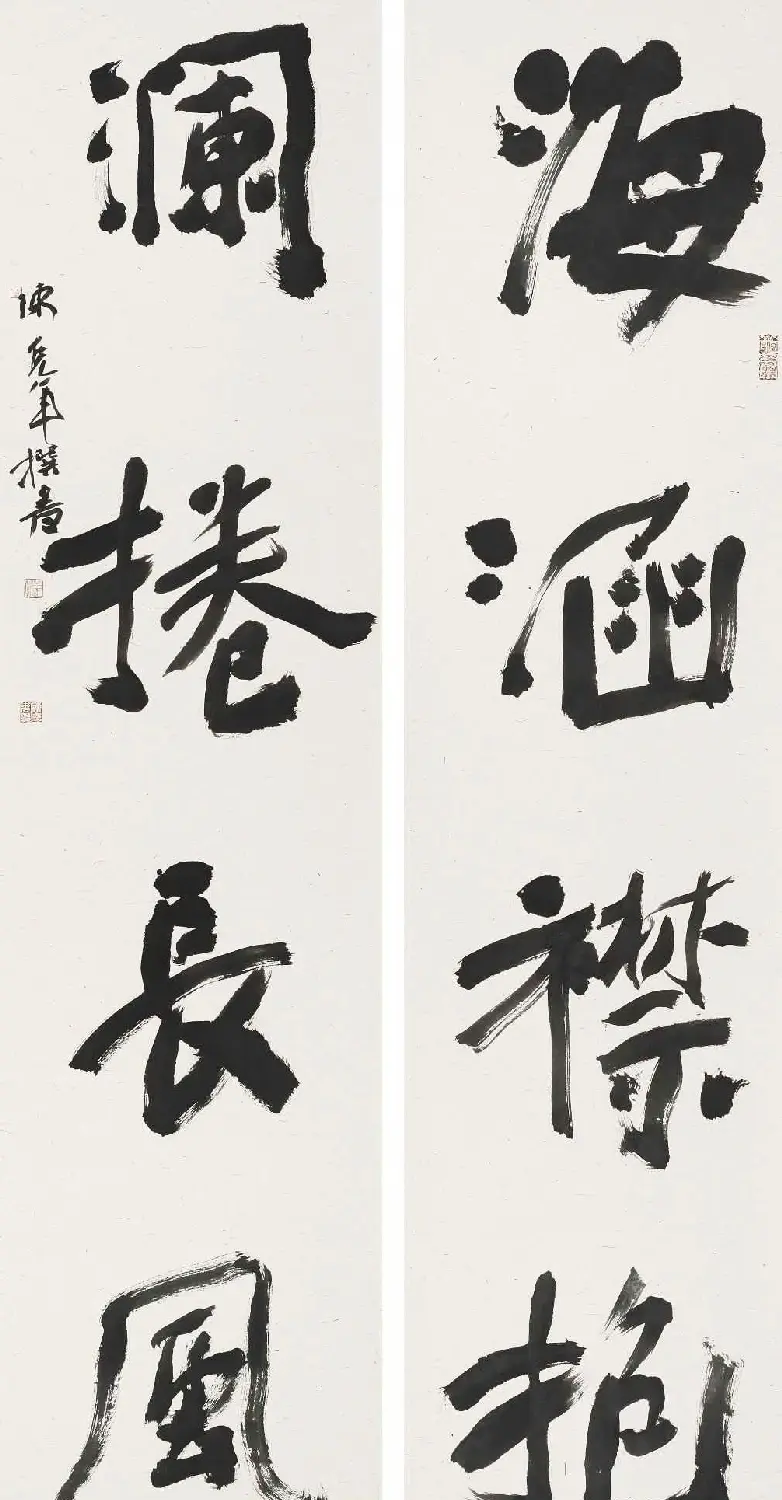 海涵襟抱
瀾捲長風
陳克年撰書